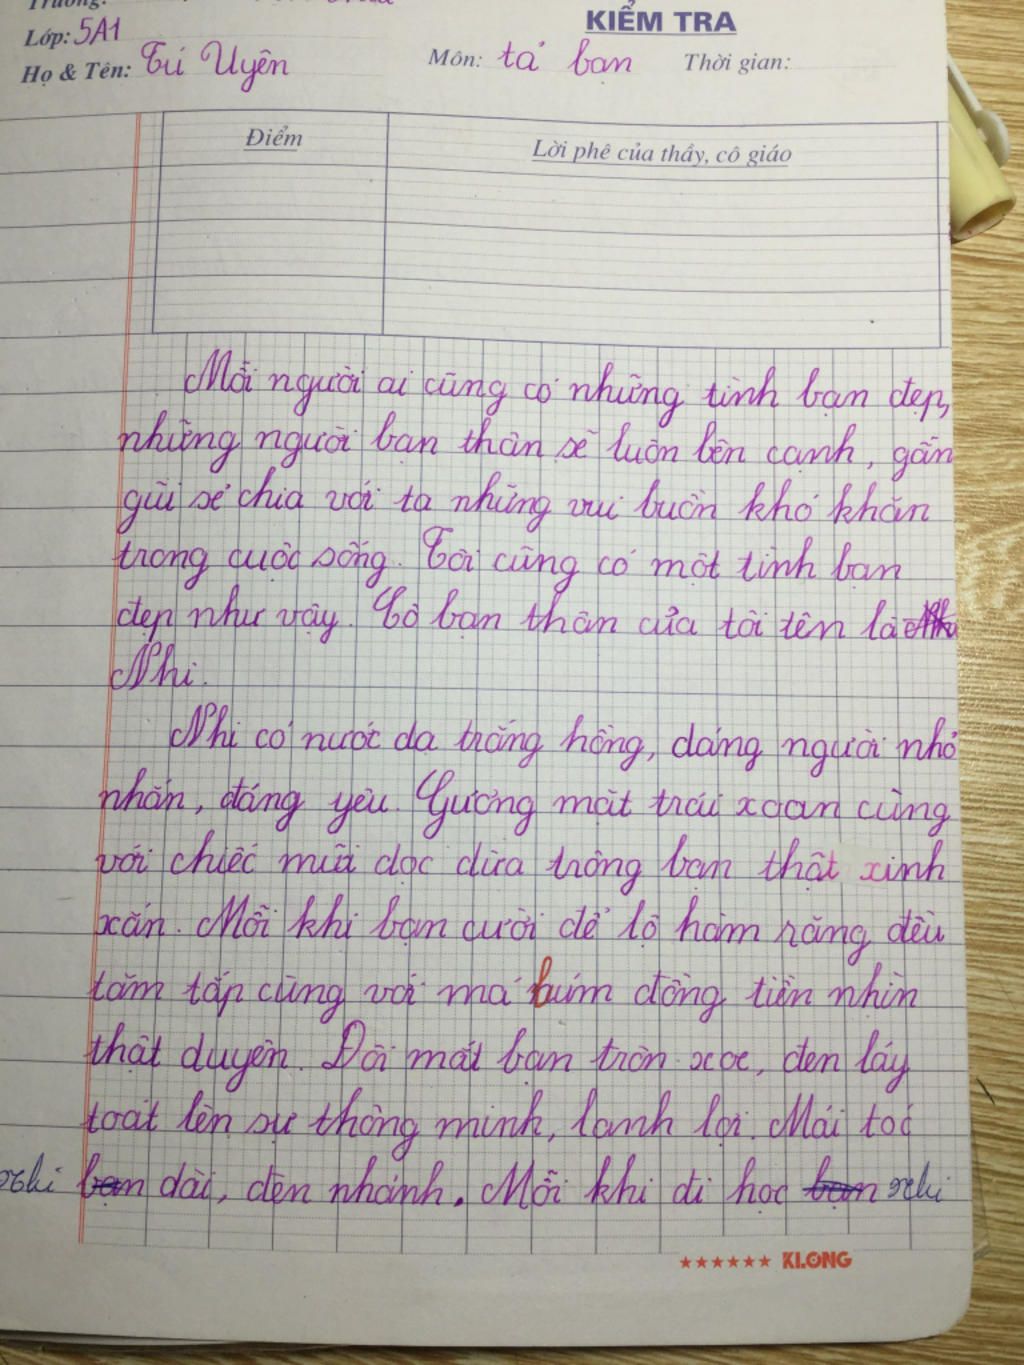 Trường:
Lớp: 5A1
KIỂM TRA
Họ & Tên: Tú Uyên
Môn: tả bạn
Thời gian:
Điểm
Lời phê của thầy, cô giáo
Mỗi người ai cũng có những tình bạn đẹp,
những người bạn thân sẽ luôn bên cạnh, gần
gũi sẻ chia với ta những vui buồn khó khăn
trong cuộc sống. Tôi cũng có một tình bạn
đẹp như vậy. Cô bạn thân của tôi tên là
Nhi.
Nhi có nước da trắng hồng, dáng người nhỏ
nhắn, đáng yêu. Gương mặt trái xoan cùng
với chiếc mũi dọc dừa trông bạn thật xinh
xắn. Mỗi khi bạn cười để lộ hàm răng đều
tăm tắp cùng với má búm đồng tiền nhìn
thật duyên. Đôi mắt bạn tròn xoe, đen láy
toát lên sự thông minh, lanh lợi. Mái tóc
Nhi bạn dài, đen nhánh. Mỗi khi đi học bạn Nhi
★★★★★★ KLONG